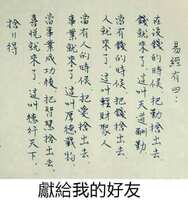 易經有四：
在沒錢的時候，把勤捨出去，
錢就來了，這叫天道酬勤
當有錢的時候，把錢捨出去，
人就來了，這叫輕財聚人
當有人的時候，把愛捨出去，
事業就來了，這叫厚德載物
當事業成功後，把智慧捨出去，
喜悅就來了，這叫德行天下。
捨得
獻給我的好友